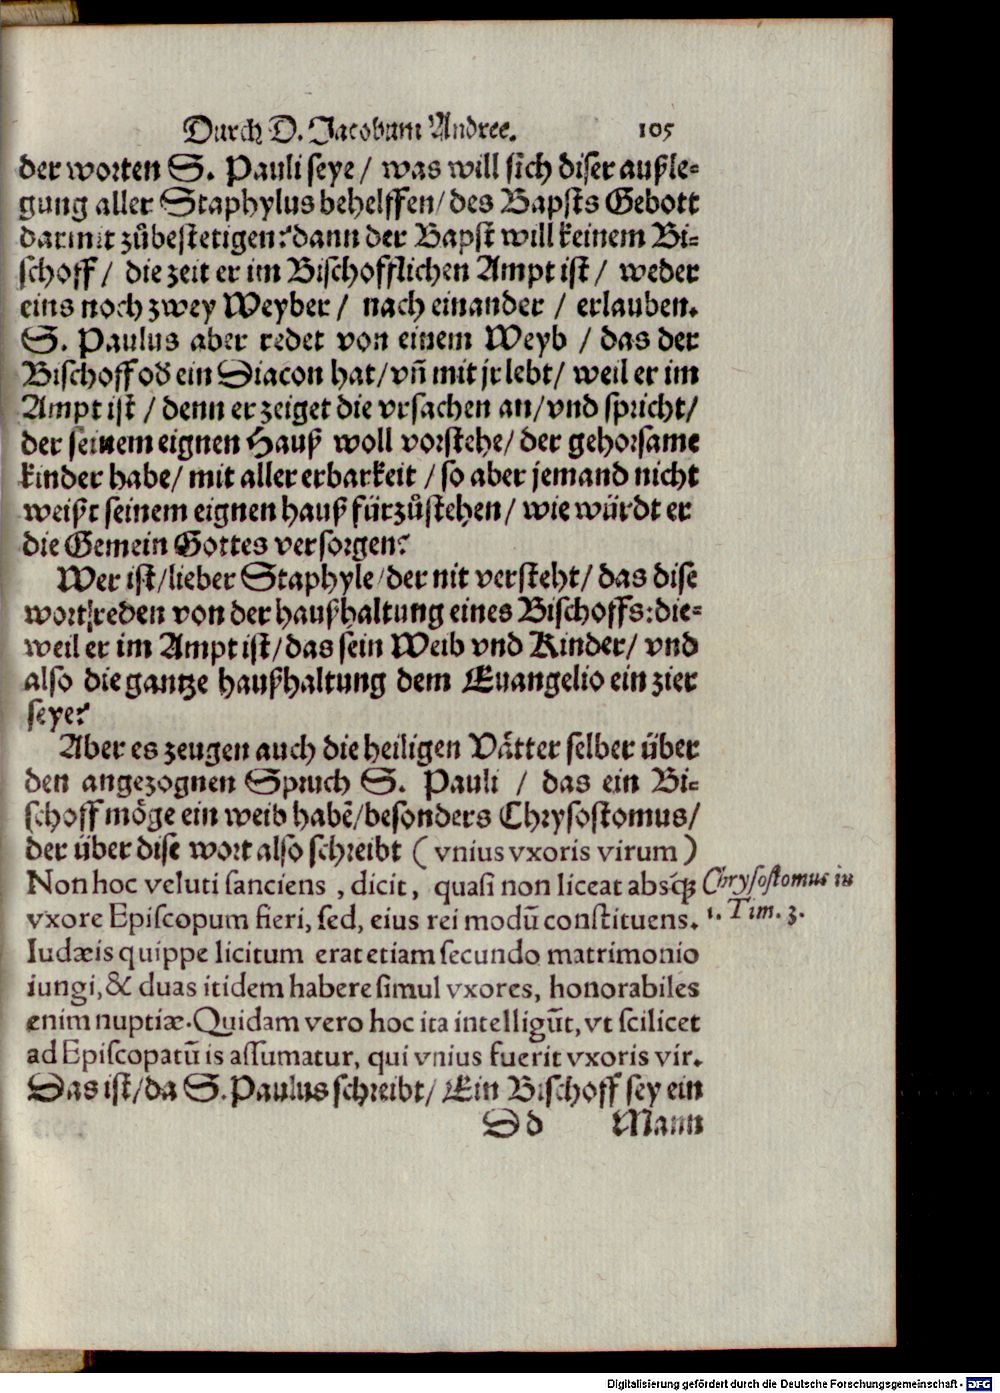 Durch D. Jacobum Andree. 105
der worten S. Pauli seye / was will sich diser außle⸗
gung aller Staphylus behelffen / des Bapsts Gebott
darmit zůbestetigen? dann der Bapst will keinem Bi⸗
schoff / die zeit er im Bischofflichen Ampt ist / weder
eins noch zwey Weyber / nach einander / erlauben.
S. Paulus aber redet von einem Weyb / das der
Bischoff oď ein Diacon hat / vñ mit jr lebt / weil er im
Ampt ist / denn er zeiget die vrsachen an / vnd spricht /
der seinem eignen Hauß woll vorstehe / der gehorsame
kinder habe / mit aller erbarkeit / so aber jemand nicht
weißt seinem eignen hauß fürzůstehen / wie würdt er
die Gemein Gottes versorgen?
Wer ist / lieber Staphyle / der nit versteht / das dise
wort reden von der haußhaltung eines Bischoffs: die⸗
weil er im Ampt ist / das sein Weib vnd Kinder / vnd
also die gantze haußhaltung dem Euangelio ein zier
seye?
Aber es zeugen auch die heiligen Vätter selber über
den angezognen Spruch S. Pauli / das ein Bi⸗
schoff möge ein weib habẽ / besonders Chrysostomus /
der über dise wort also schreibt ( vnius vxoris virum )
Non hoc veluti sanciens , dicit , quasi non liceat absq́ꝫ
Chrysostomus in
1. Tim. 3.
vxore Episcopum fieri, sed, eius rei modũ constituens.
Iudæis quippe licitum erat etiam secundo matrimonio
iungi, & duas itidem habere simul vxores, honorabiles
enim nuptiæ. Quidam vero hoc ita intelligũt, vt scilicet
ad Episcopatũ is assumatur, qui vnius fuerit vxoris vir.
Das ist / da S. Paulus schreibt / Ein Bischoff sey ein
Dd Mann
Digitalisierung gefördert durch die Deutsche Forschungsgemeinschaft - DFG